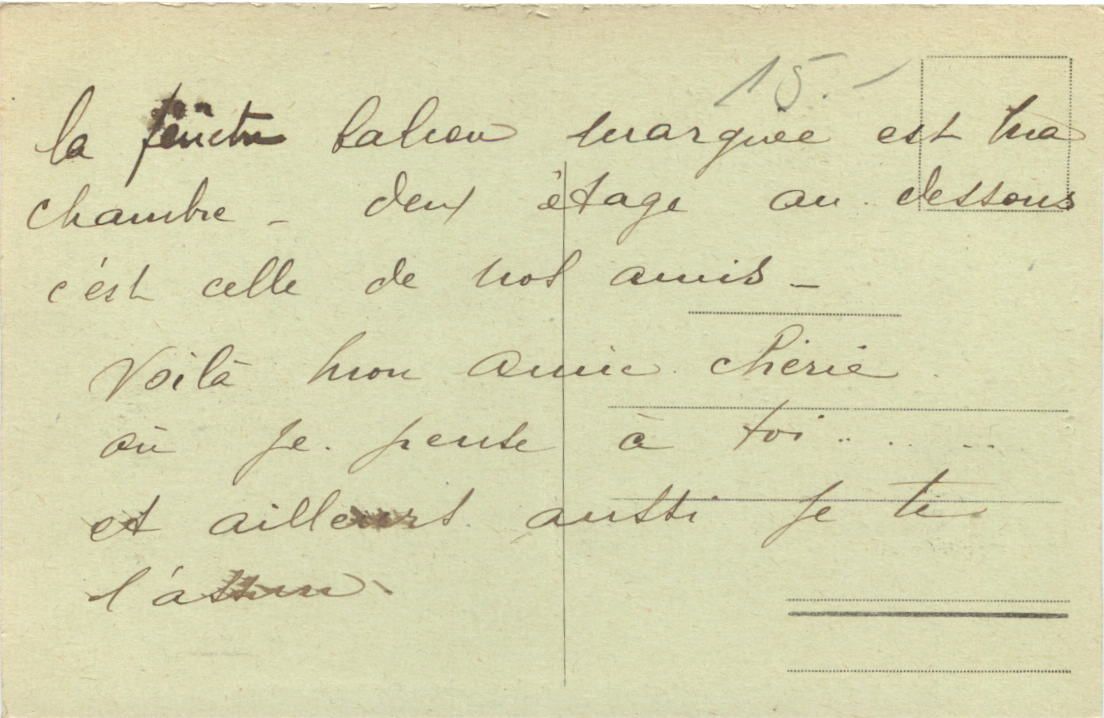 15.-
la fenêtre balcon marquée est ma
chambre - deux étage au dessous
c'est celle de nos amis -
Voilà mon amie chérie
où je pense à toi .. . . ...
et ailleurs aussi je te
l'assure.